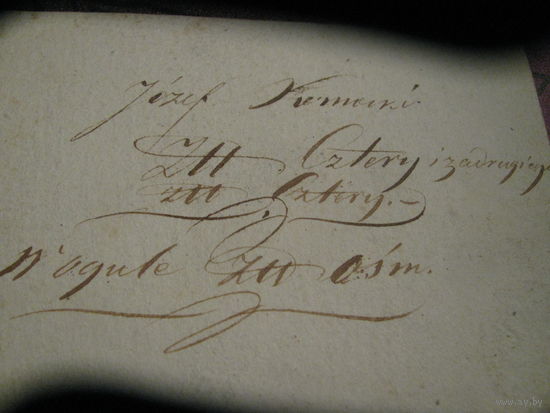 Józef
Złł Cztery i za drugiego
złł Cztéry.–
W ogule złł ośm.
www.ay.by